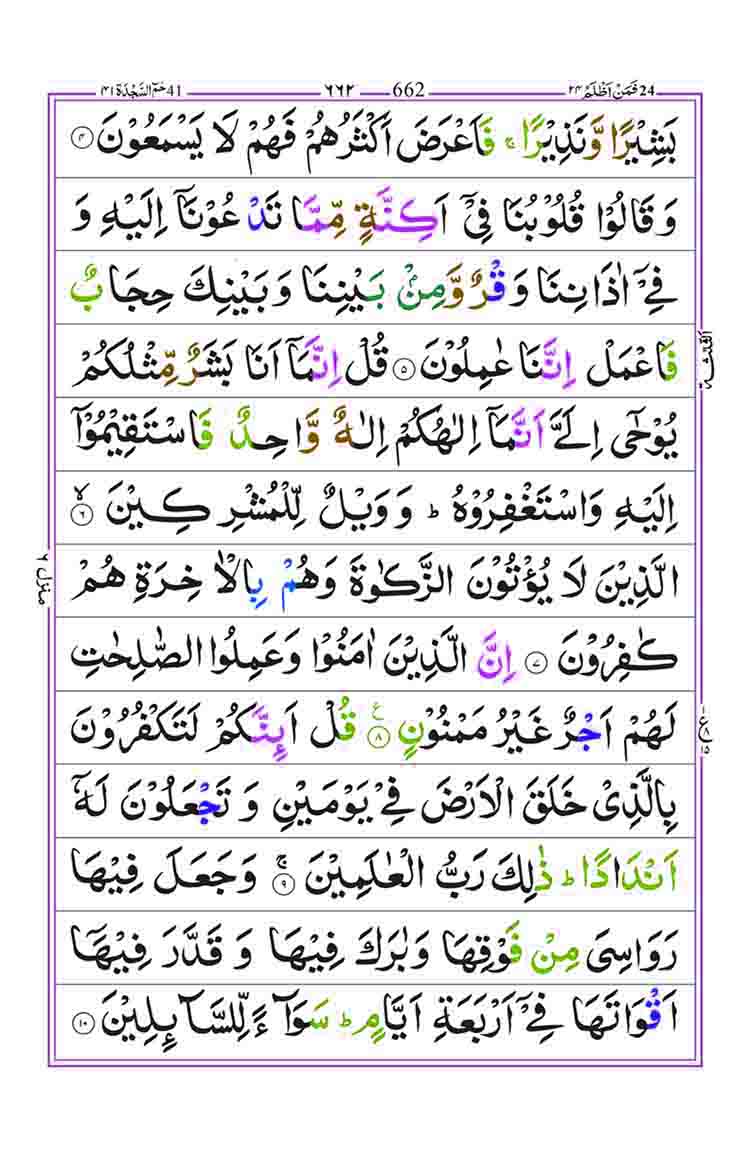 24 فَمَنْ اَظْلَمُ ٢٤ 662 ٦٦٢ 41 حٰمٓ السَّجْدَة ٤١
بَشِيْرًا وَّنَذِيْرًا ۚ فَاَعْرَضَ اَكْثَرُهُمْ فَهُمْ لَا يَسْمَعُوْنَ ۴
وَ قَالُوْا قُلُوْبُنَا فِيْۤ اَكِنَّةٍ مِّمَّا تَدْعُوْنَاۤ اِلَيْهِ وَ
فِيْۤ اٰذَانِنَا وَقْرٌ وَّمِنْۢ بَيْنِنَا وَبَيْنِكَ حِجَابٌ
فَاعْمَلْ اِنَّنَا عٰمِلُوْنَ ۵ قُلْ اِنَّمَاۤ اَنَا بَشَرٌ مِّثْلُكُمْ
يُوْحٰۤى اِلَيَّ اَنَّمَاۤ اِلٰهُكُمْ اِلٰهٌ وَّاحِدٌ فَاسْتَقِيْمُوْۤا
اِلَيْهِ وَاسْتَغْفِرُوْهُ ؕ وَ وَيْلٌ لِّلْمُشْرِكِيْنَ ۙ ۶
الَّذِيْنَ لَا يُؤْتُوْنَ الزَّكٰوةَ وَهُمْ بِالْاٰخِرَةِ هُمْ
كٰفِرُوْنَ ۷ اِنَّ الَّذِيْنَ اٰمَنُوْا وَعَمِلُوا الصّٰلِحٰتِ
لَهُمْ اَجْرٌ غَيْرُ مَمْنُوْنٍ ۸ ع قُلْ اَىِٕنَّكُمْ لَتَكْفُرُوْنَ
بِالَّذِيْ خَلَقَ الْاَرْضَ فِيْ يَوْمَيْنِ وَ تَجْعَلُوْنَ لَهٗۤ
اَنْدَادًا ؕ ذٰلِكَ رَبُّ الْعٰلَمِيْنَ ۚ ۹ وَجَعَلَ فِيْهَا
رَوَاسِيَ مِنْ فَوْقِهَا وَبٰرَكَ فِيْهَا وَ قَدَّرَ فِيْهَاۤ
اَقْوَاتَهَا فِيْۤ اَرْبَعَةِ اَيَّامٍ ؕ سَوَآءً لِّلسَّآىِٕلِيْنَ ۱۰
الثلثة
منزل ٦